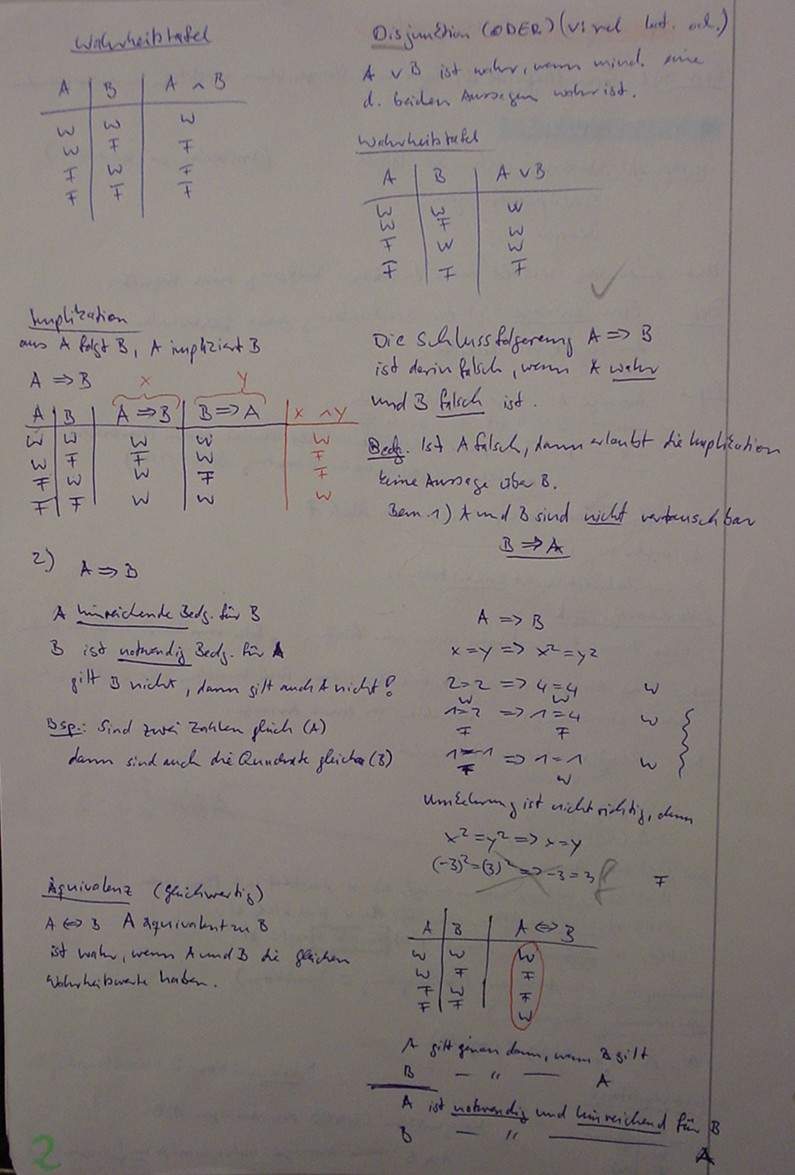 Wahrheitstafel
A | B | A ∧ B
W | W | W
W | F | F
F | W | F
F | F | F
Disjunktion (ODER) (v: vel lat. od.)
A ∨ B ist wahr, wenn mind. eine
d. beiden Aussagen wahr ist.
Wahrheitstafel
A | B | A ∨ B
W | W | W
W | F | W
F | W | W
F | F | F
Implikation
aus A folgt B, A impliziert B
A ⇒ B
x y
A | B | A ⇒ B | B ⇒ A | x ∧ y
W | W | W | W | W
W | F | F | W | F
F | W | W | F | F
F | F | W | W | W
Die Schlussfolgerung A ⇒ B
ist dann falsch, wenn A wahr
und B falsch ist.
Bedg. Ist A falsch, dann erlaubt die Implikation
keine Aussage über B.
Bem. 1) A und B sind nicht vertauschbar
B ⇒ A
2) A ⇒ B
A hinreichende Bedg. für B
B ist notwendig Bedg. für A
gilt B nicht, dann gilt auch A nicht!
Bsp.: Sind zwei Zahlen gleich (A)
dann sind auch die Quadrate gleich (B)
A ⇒ B
x = y ⇒ x² = y²
2 = 2 ⇒ 4 = 4 W
W W
1 = 2 ⇒ 1 = 4 W
F F
1 = -1 ⇒ 1 = 1 W
F W
Umkehrung ist nicht richtig, denn
x² = y² ⇒ x = y
(-3)² = (3)² ⇒ -3 = 3 F
Äquivalenz (gleichwertig)
A ⇔ B A äquivalent zu B
ist wahr, wenn A und B die gleichen
Wahrheitswerte haben.
A | B | A ⇔ B
W | W | W
W | F | F
F | W | F
F | F | W
A gilt genau dann, wenn B gilt
B — " — A
A ist notwendig und hinreichend für B
B — " — A
2